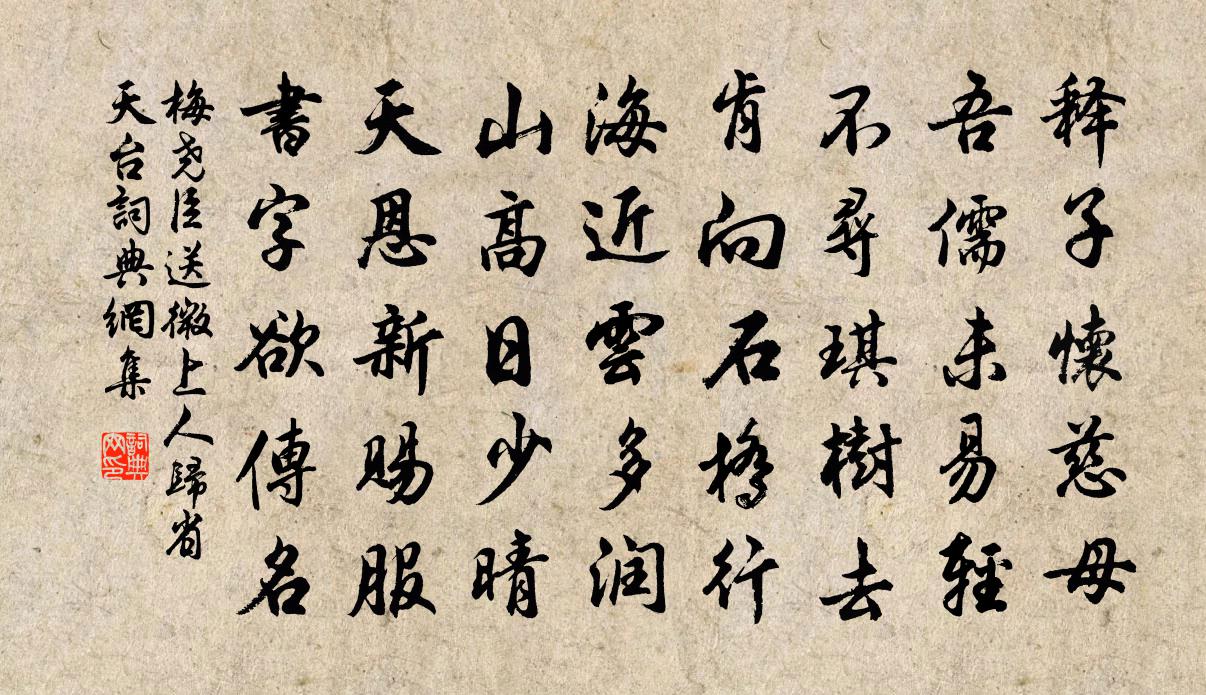 释子懷慈母
吾儒未易輕
不尋琪樹去
肯向石橋行
海近雲多润
山高日少晴
天恩新賜服
書字欲傳名
梅尧臣送微上人歸省
天台詞典網集
詞典
网印